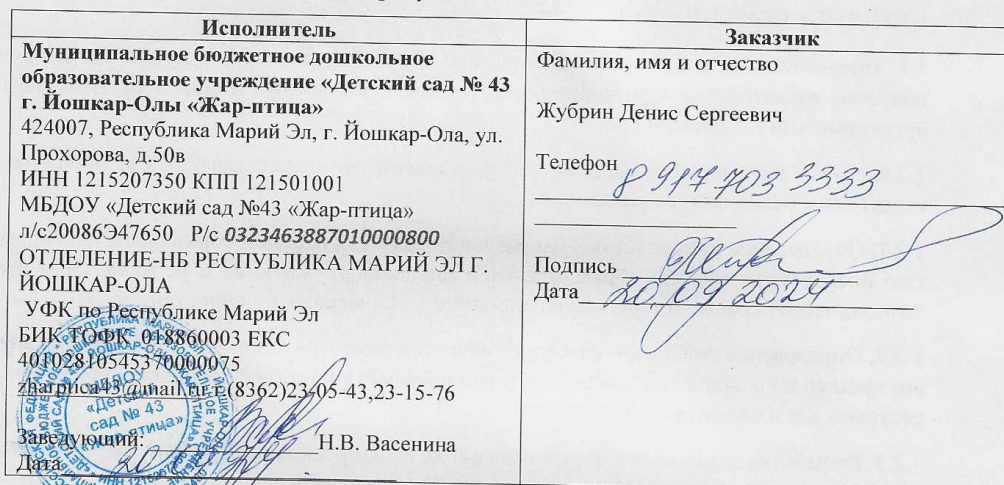 Исполнитель
Муниципальное бюджетное дошкольное
образовательное учреждение «Детский сад № 43
г. Йошкар-Олы «Жар-птица»
424007, Республика Марий Эл, г. Йошкар-Ола, ул.
Прохорова, д.50в
ИНН 1215207350 КПП 121501001
МБДОУ «Детский сад №43 «Жар-птица»
л/с20086Э47650 Р/с 03234638870100000800
ОТДЕЛЕНИЕ-НБ РЕСПУБЛИКА МАРИЙ ЭЛ Г.
ЙОШКАР-ОЛА
УФК по Республике Марий Эл
БИК ТОФК 018860003 ЕКС
40102810545370000075
zharptica43@mail.ru т.(8362)23-05-43,23-15-76
МБДОУ
«Детский
сад № 43
«Жар-птица»
Заведующий: Н.В. Васенина
Дата
Заказчик
Фамилия, имя и отчество
Жубрин Денис Сергеевич
Телефон 8 917 703 3333
Подпись
Дата 20,09,2024